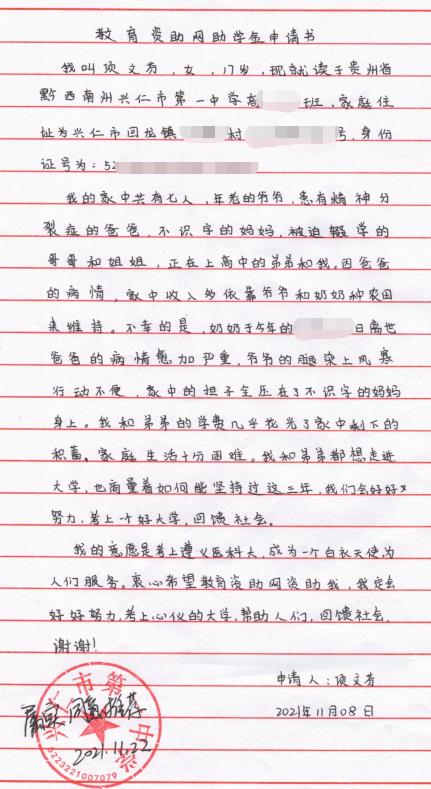 教育资助网助学金申请书
我叫项文芳，女，17岁，现就读于贵州省
黔西南州兴仁市第一中学高 班，家庭住
址为兴仁市回龙镇 村 号，身份
证号为：52
我的家中共有七人，年老的爷爷，患有精神分
裂症的爸爸，不识字的妈妈，被迫辍学的
哥哥和姐姐，正在上高中的弟弟和我。因爸爸
的病情，家中收入多依靠爷爷和奶奶种农田
来维持。不幸的是，奶奶于今年的 日离世
爸爸的病情愈加严重，爷爷的腿染上风寒
行动不便，家中的担子全压在了不识字的妈妈
身上。我和弟弟的学费几乎花光了家中剩下的
积蓄。家庭生活十分困难。我和弟弟都想走进
大学，也商量着如何能坚持过这三年，我们会好好
努力，考上一个好大学，回馈社会。
我的意愿是考上遵义医科大，成为一个白衣天使为
人们服务。衷心希望教育资助网资助我，我定会
好好努力，考上心仪的大学，帮助人们，回馈社会.
谢谢！
申请人：项文芳
2021年11月08日
兴仁市第一中学
属实 同意推荐
2021.11.22
5223221007079